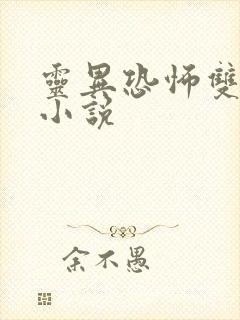 靈異恐怖雙
小說
余不愚